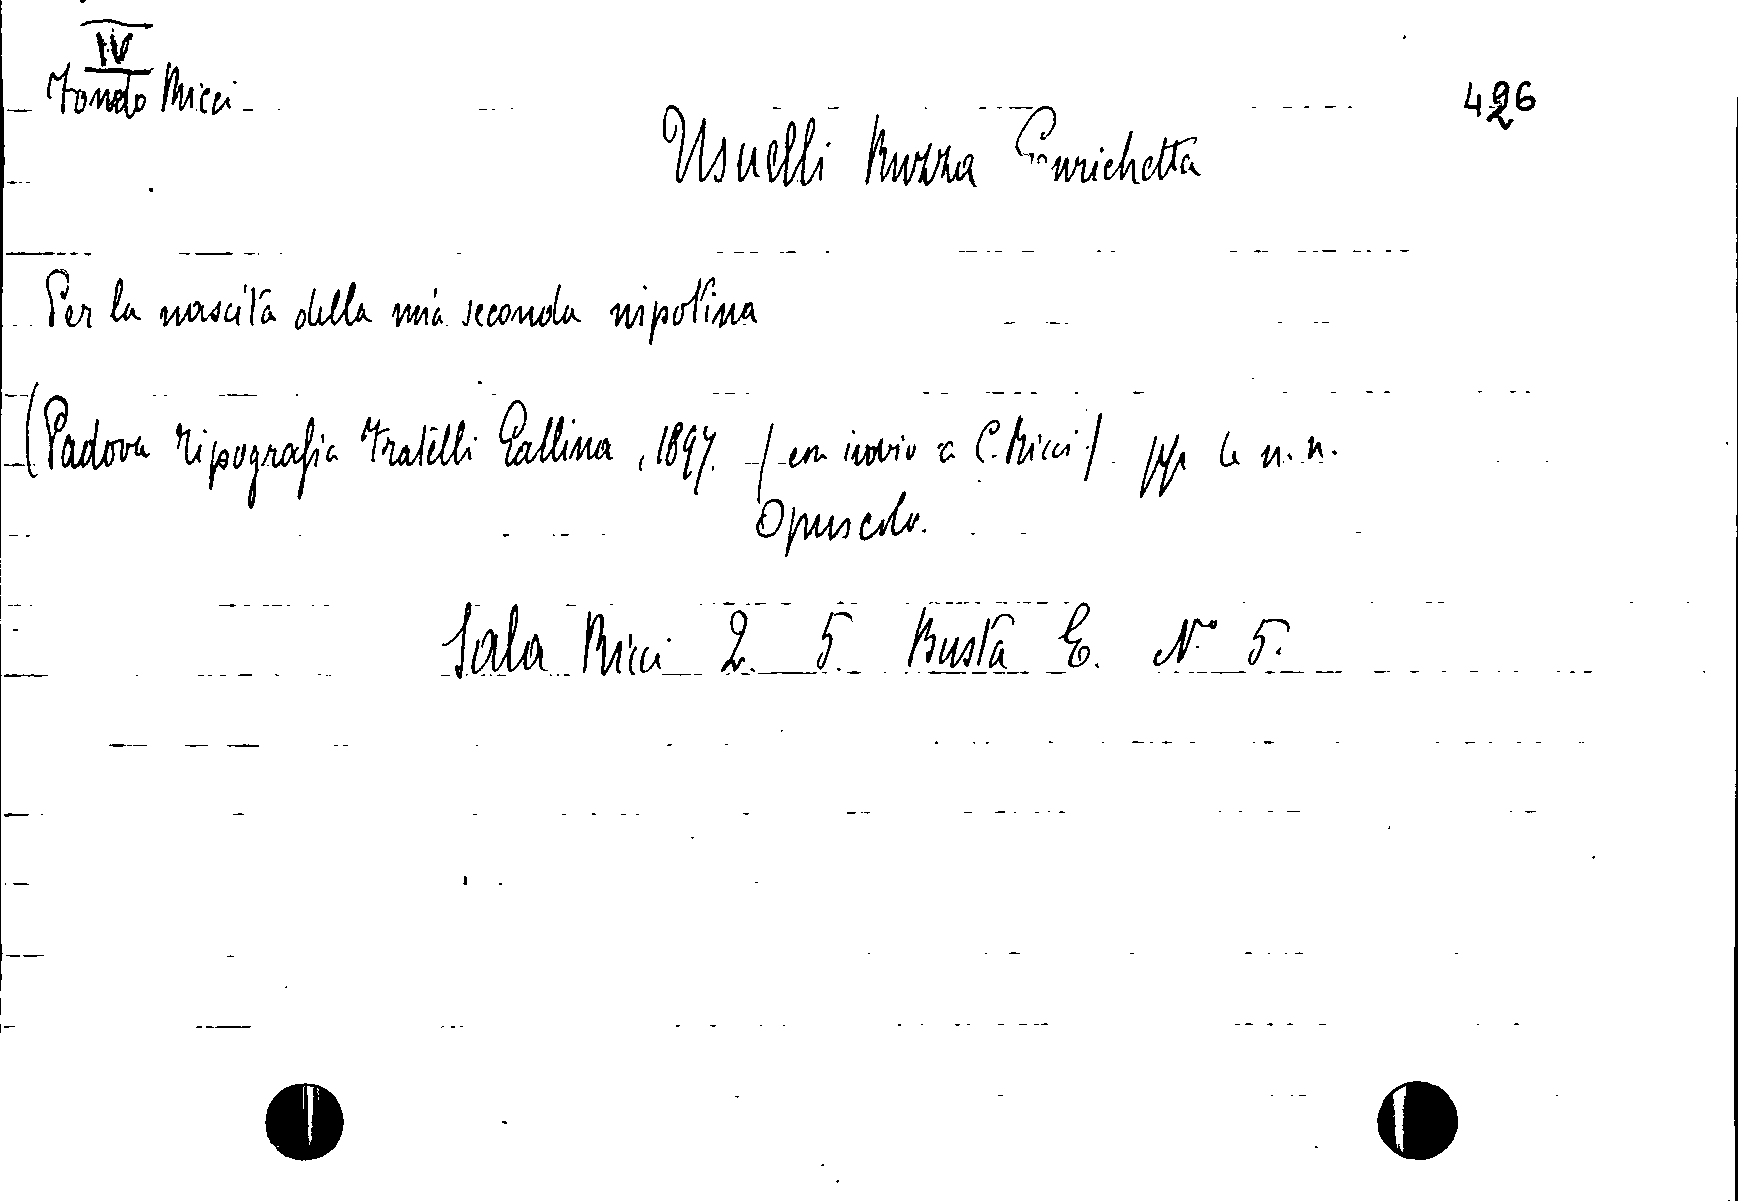 IV
Fondo Ricci
426
Usuelli Ruzza Enrichetta
Per la nascita della mia seconda nipotina
(Padova Tipografia Fratelli Gallina, 1897. (con invio a C. Ricci) pp 6 n. n.
Opuscolo.
Sala Ricci 2. 5. Busta E. N° 5.